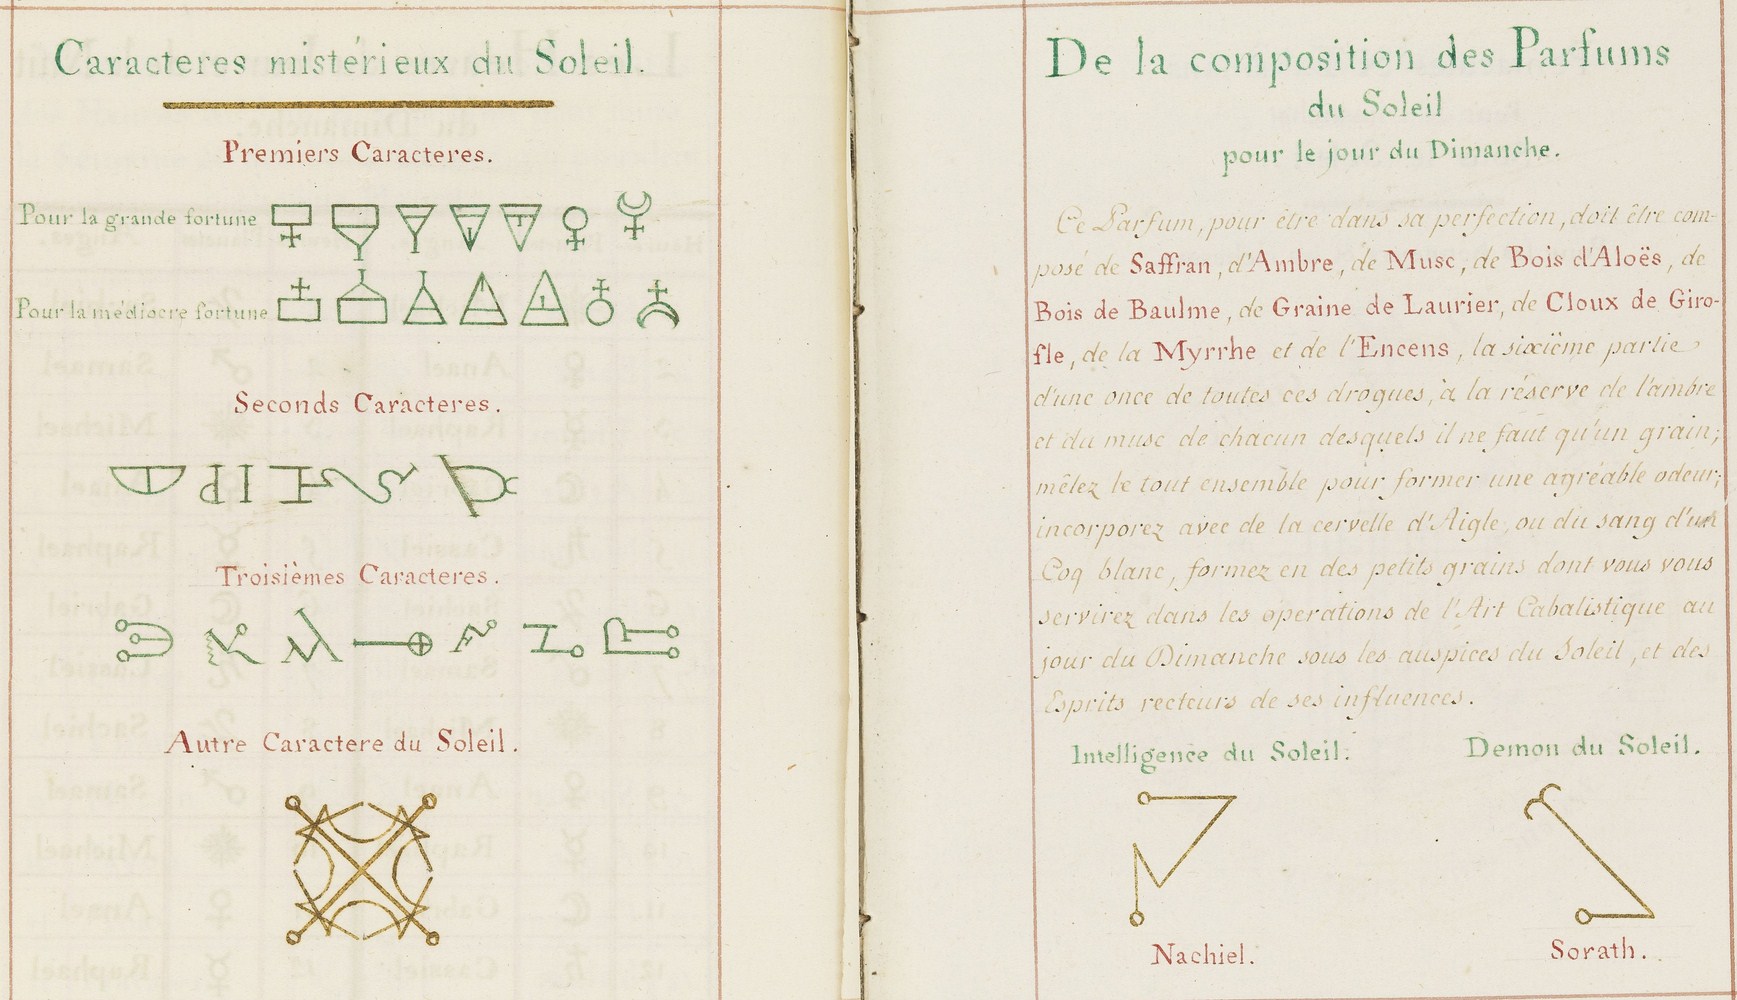 Caracteres mistérieux du Soleil.
Premiers Caracteres.
Pour la grande fortune
Pour la médiocre fortune
Seconds Caracteres.
Troisièmes Caracteres.
Autre Caractere du Soleil.
De la composition des Parfums
du Soleil
pour le jour du Dimanche.
Ce Parfum, pour être dans sa perfection, doit être com-
posé de Saffran, d'Ambre, de Musc, de Bois d'Aloës, de
Bois de Baulme, de Graine de Laurier, de Cloux de Giro-
fle, de la Myrrhe et de l'Encens, la sixiême partie
d'une once de toutes ces drogues, à la réserve de l'ambre
et du musc de chacun desquels il ne faut qu'un grain;
mêlez le tout ensemble pour former une agréable odeur;
incorporez avec de la cervelle d'Aigle, ou du sang d'un
Coq blanc, formez en des petits grains dont vous vous
servirez dans les operations de l'Art Cabalistique au
jour du Dimanche sous les auspices du Soleil, et des
Esprits recteurs de ses influences.
Intelligence du Soleil.
Demon du Soleil.
Nachiel.
Sorath.